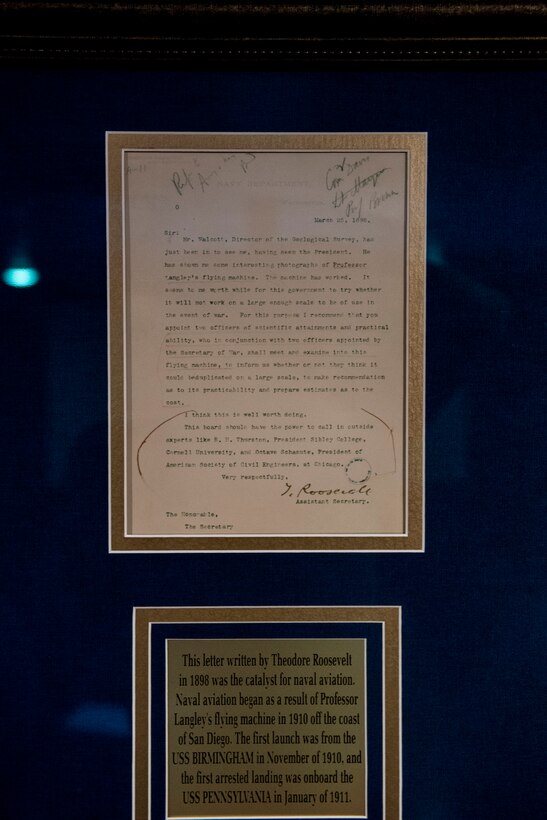 NAVY DEPARTMENT
March 25, 1898.
Sir:
Mr. Walcott, Director of the Geological Survey, has
just been in to see me, having seen the President. He
has shown me some interesting photographs of Professor
Langley's flying machine. The machine has worked. It
seems to me worth while for this government to try whether
it will not work on a large enough scale to be of use in
the event of war. For this purpose I recommend that you
appoint two officers of scientific attainments and practical
ability, who in conjunction with two officers appointed by
the Secretary of War, shall meet and examine into this
flying machine, to inform us whether or not they think it
could be duplicated on a large scale, to make recommendation
as to its practicability and prepare estimates as to the
cost.
I think this is well worth doing.
This board should have the power to call in outside
experts like R. H. Thurston, President Sibley College,
Cornell University, and Octave Schanute, President of
American Society of Civil Engineers, at Chicago.
Very respectfully,
T. Roosevelt
Assistant Secretary.
The Honorable,
The Secretary
This letter written by Theodore Roosevelt
in 1898 was the catalyst for naval aviation.
Naval aviation began as a result of Professor
Langley's flying machine in 1910 off the coast
of San Diego. The first launch was from the
USS BIRMINGHAM in November of 1910, and
the first arrested landing was onboard the
USS PENNSYLVANIA in January of 1911.